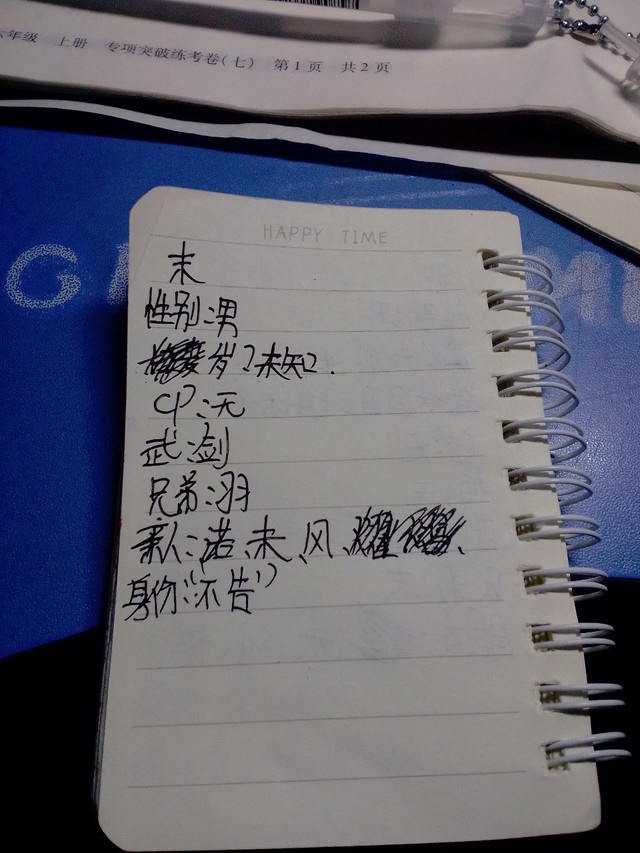 六年级 上册 专项突破练考卷(七) 第1页 共2页
HAPPY TIME
末
性别:男
岁?未知?.
CP:无
武:剑
兄弟:羽
亲人:诺、未、风、
身份:“不告”